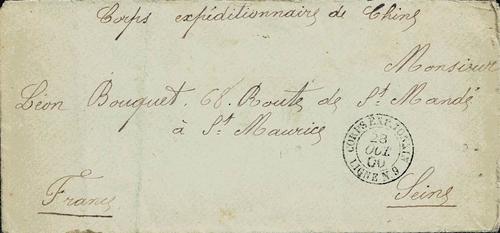 Corps expéditionnaire de Chine
Monsieur
Léon Bouquet. 68. Route de St Mandé
à St Maurice
CORPS EXP. TONKIN
28
OCT.
00
LIGNE N. 9
France
Seine